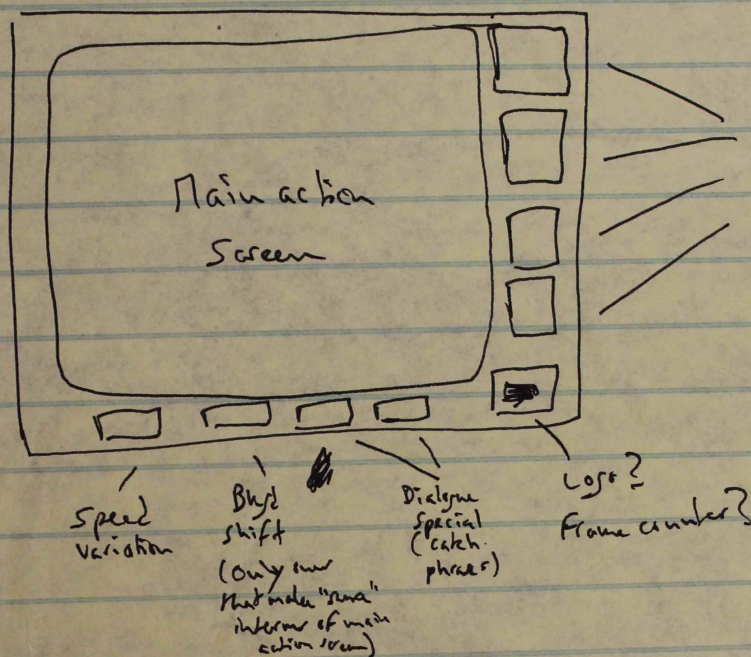 Main action
Screen
Speed
variation
Bkgd
shift
(only ones
that make "sense"
in terms of main
action screen)
Dialogue
special
(catch
phrases)
Logo?
Frame counter?